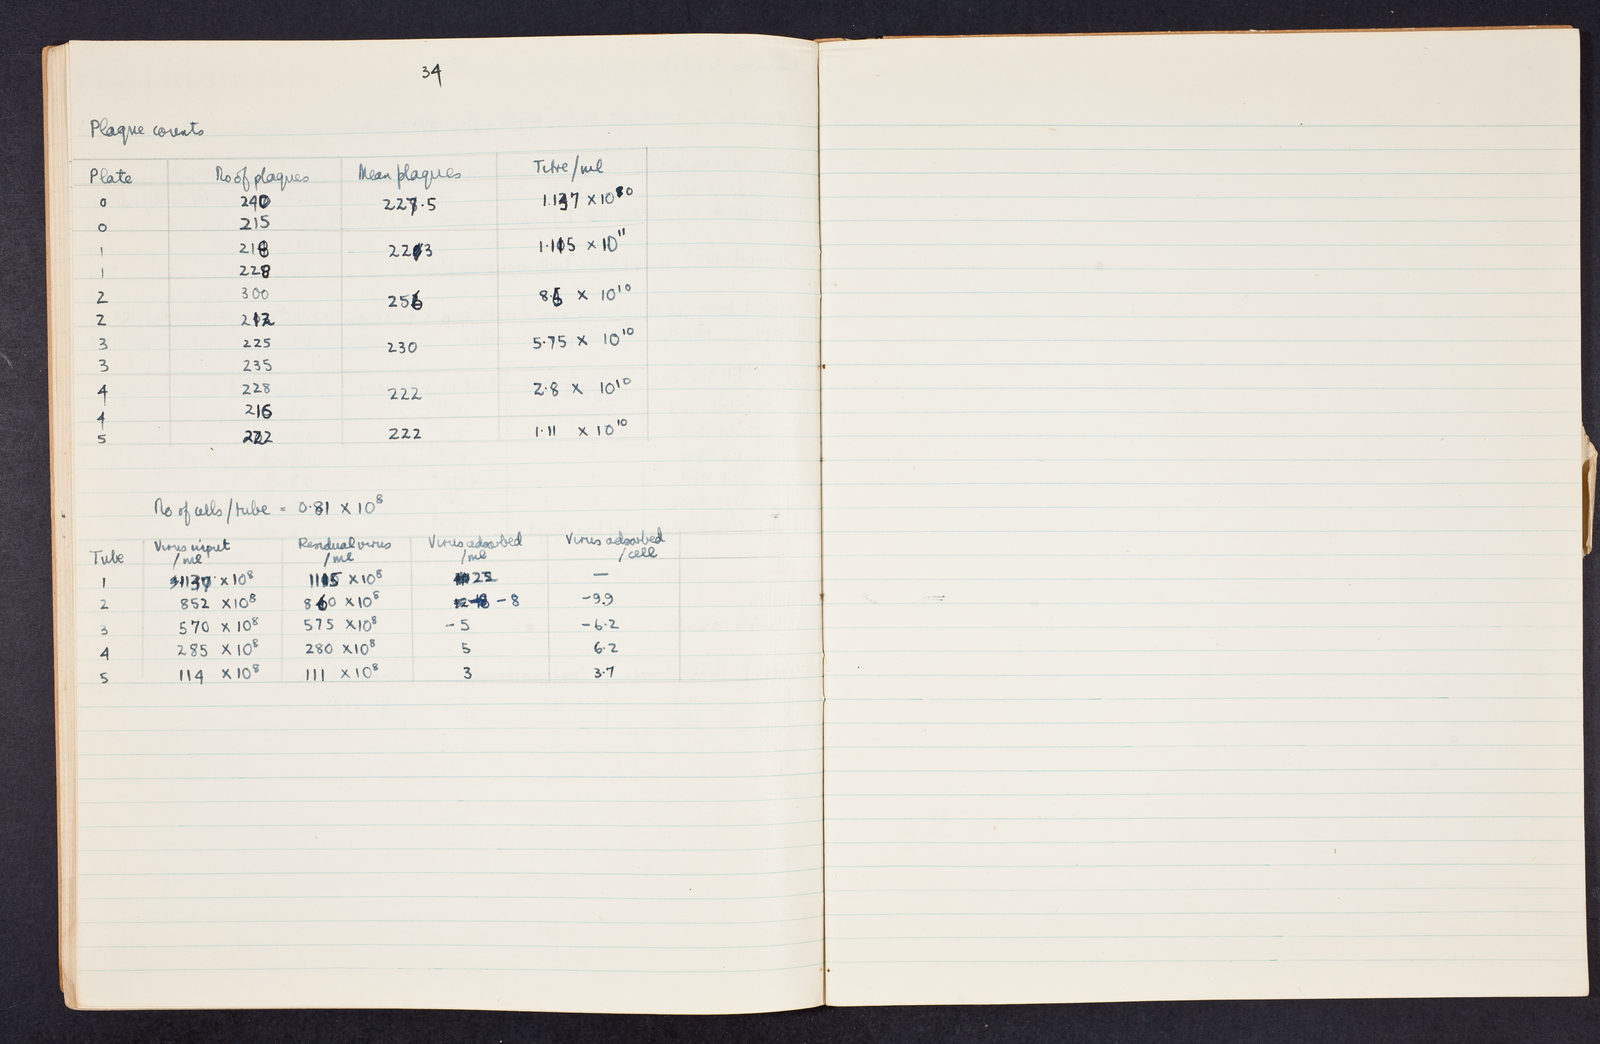 34
Plaque counts
Plate No of plaques Mean plaques Titre/ml
0 240 227.5 1.137 × 10
0 215
1 218 223 1.115 × 10¹¹
1 228
2 300 256 8.6 × 10¹⁰
2 212
3 225 230 5.75 × 10¹⁰
3 235
4 228 222 2.8 × 10¹⁰
4 216
5 222 222 1.11 × 10¹⁰
No of cells/tube = 0.81 × 10⁸
Tube Virus input /ml Residual virus /ml Virus adsorbed /ml Virus adsorbed /cell
1 1137 × 10⁸ 1115 × 10⁸ 22 —
2 852 × 10⁸ 860 × 10⁸ -8 -9.9
3 570 × 10⁸ 575 × 10⁸ -5 -6.2
4 285 × 10⁸ 280 × 10⁸ 5 6.2
5 114 × 10⁸ 111 × 10⁸ 3 3.7